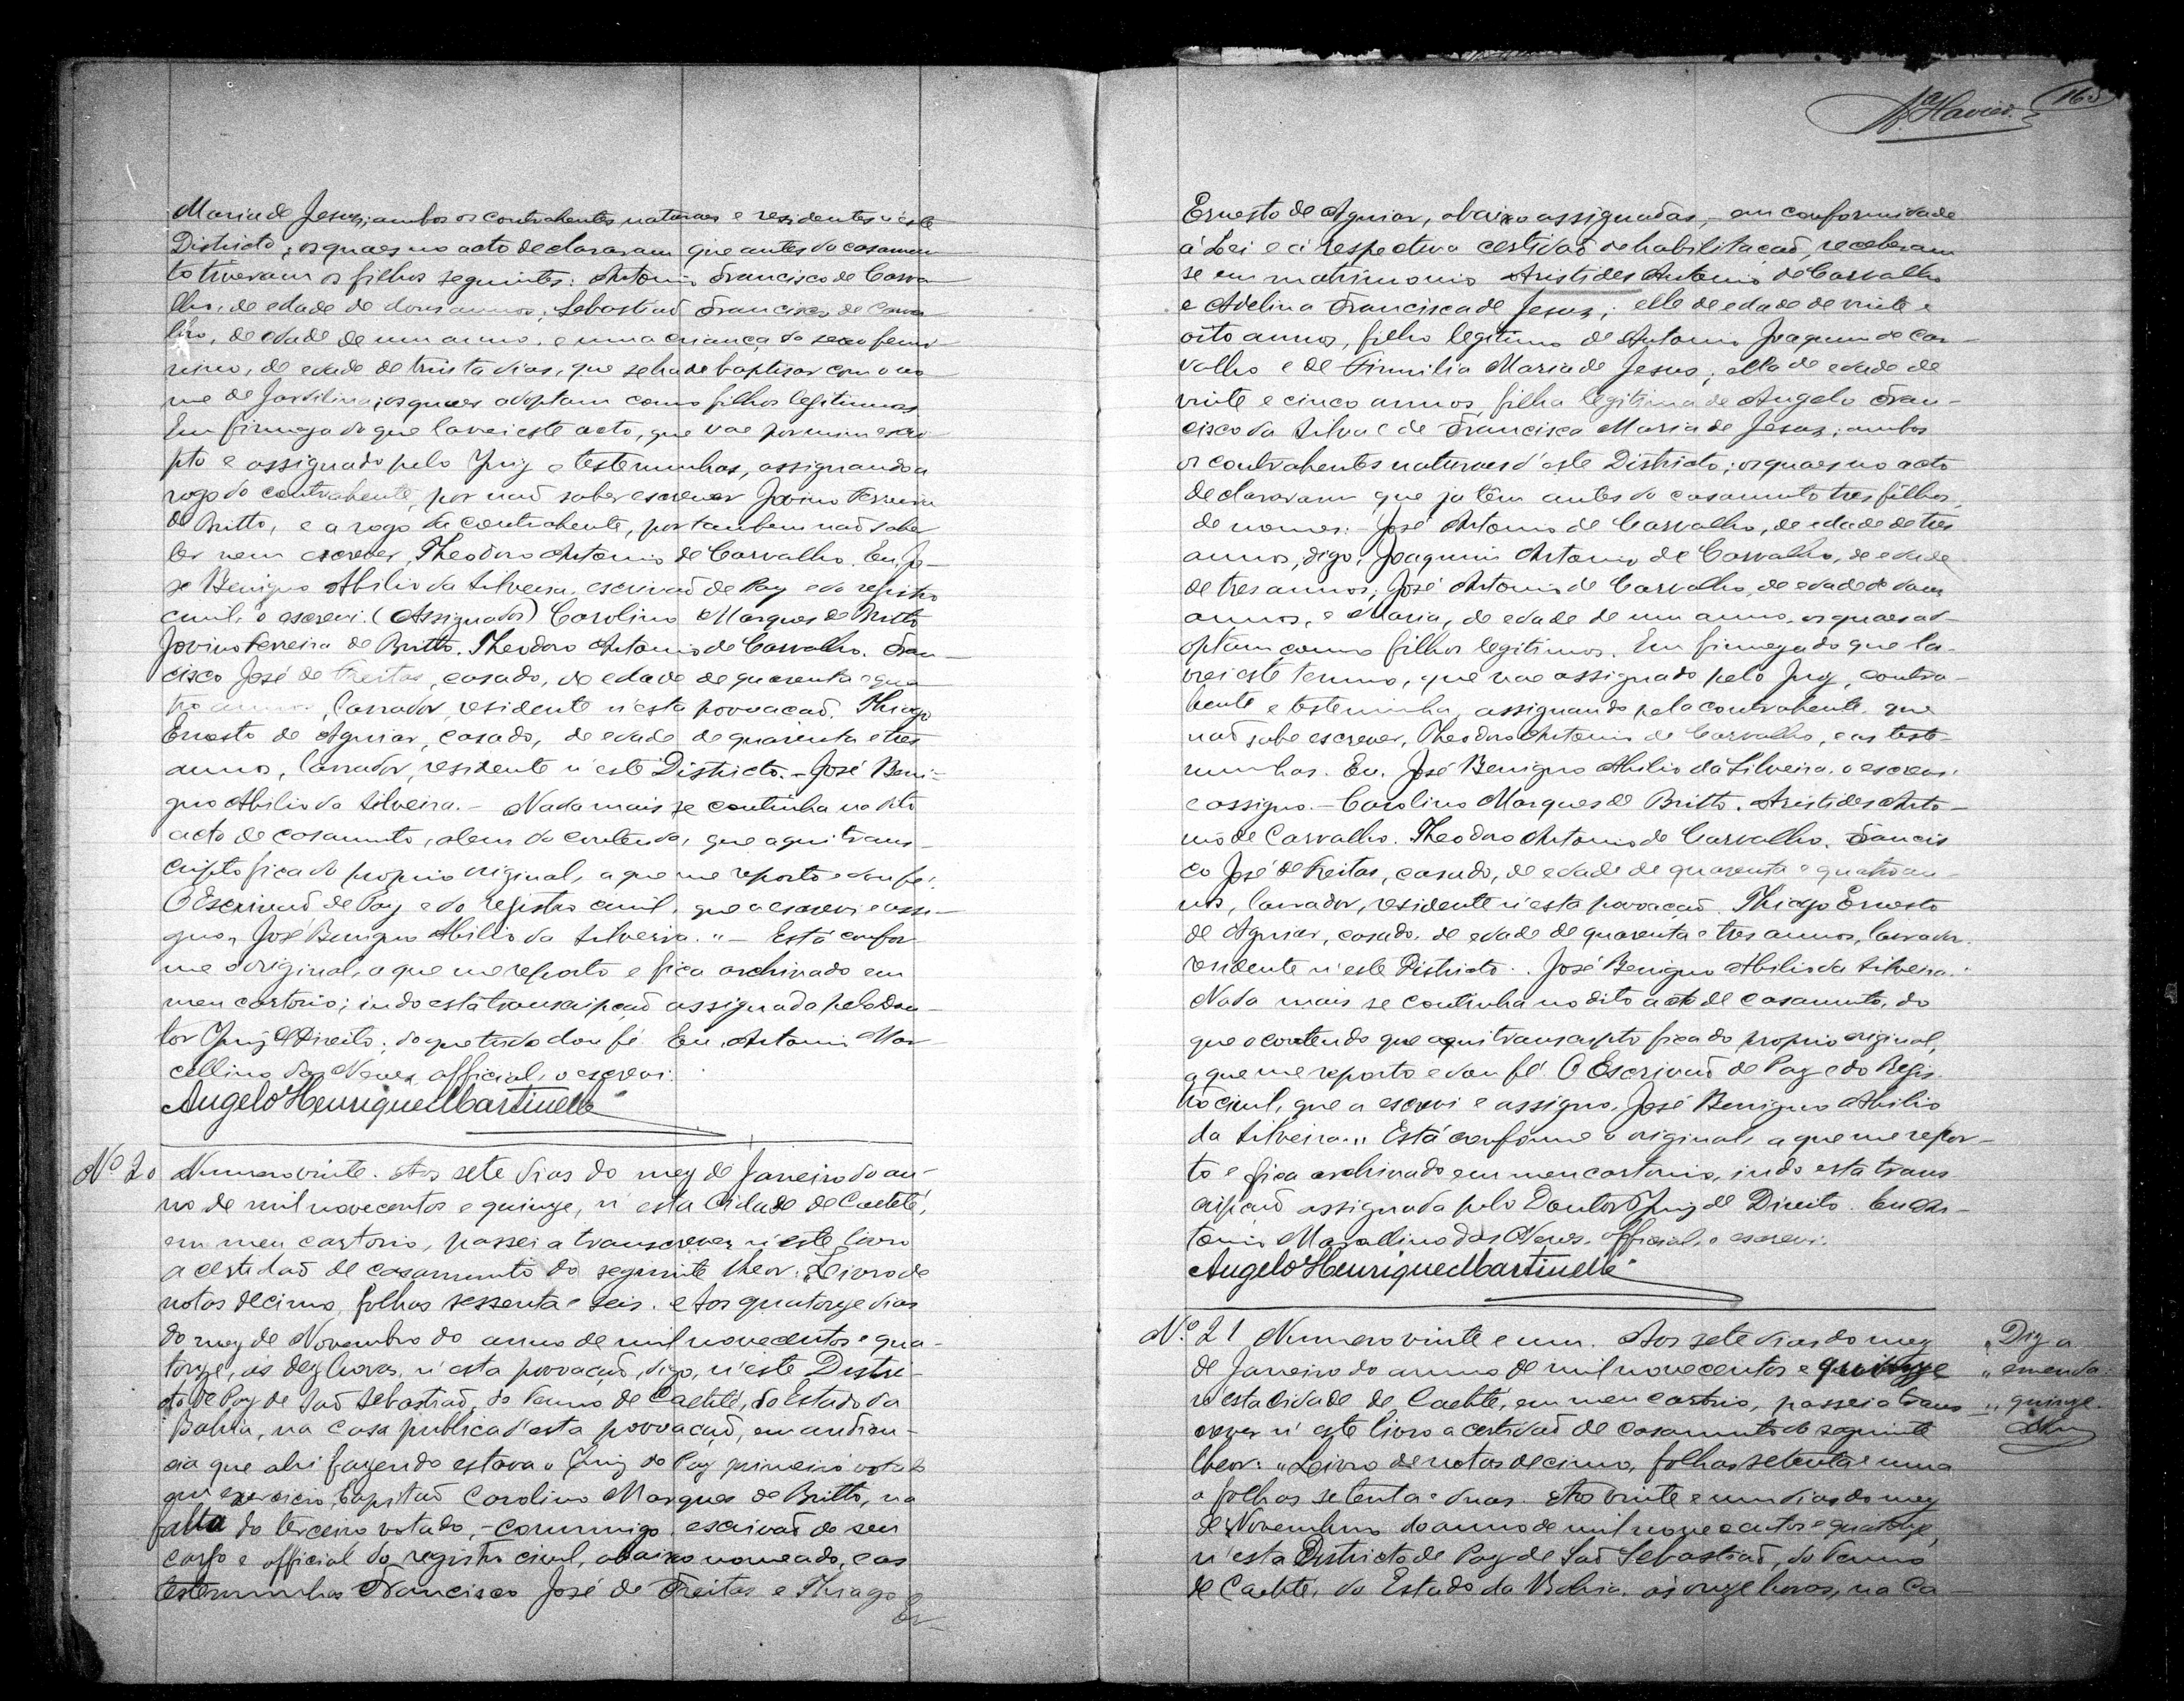 Maria de Jesus; ambos os contrahentes naturaes e residentes n'este
Districto; os quaes no acto declararam que antes do casamen-
to tiveram os filhos seguintes: Antonio Francisco de Carva-
lho, de edade de dous annos; Sebastiaõ Francisco de Carva-
lho, de edade de um anno, e uma criança do sexo femi-
nino, de edade de trinta dias, que se ha de baptisar com o no-
me de Jovilina; os quaes adoptam como filhos legitimos.
Em firmeza do que lavrei este acto, que vae por mim escri-
pto e assignado pelo Juiz e testemunhas, assignando a
rogo do contrahente, por naõ saber escrever Jovino Ferreira
de Britto, e a rogo da contrahente, por tambem naõ saber
ler nem escrever, Theodoro Antonio de Carvalho. Eu, Jo-
sé Benigno Abilio da Silveira, escrivaõ de Paz e do registro
civil, o escrevi. (Assignados) Carolino Marques de Britto
Jovino Ferreira de Britto. Theodoro Antonio de Carvalho. Fran-
cisco José de Freitas, casado, de edade de quarenta e qua-
tro annos, lavrador, residente n'esta povoaçaõ. Thiago
Ernesto de Aguiar, casado, de edade de quarenta e tres
annos, lavrador, residente n'este Districto. - José Beni-
gno Abilio da Silveira. - Nada mais se continha no dito
acto de casamento, alem do contendo, que aqui trans-
cripto fica do proprio original, a que me reporto e dou fé.
O Escrivaõ de Paz e do registro civil, que o escrevi e assi-
gno, José Benigno Abilio da Silveira." - Está confor-
me o original, a que me reporto e fica archivado em
meu cartorio; indo esta transcripçaõ assignada pelo Dou-
tor Juiz de Direito; do que tudo dou fé. Eu, Antonio Mar-
cellino das Neves, official, o escrevi.
Angelo Henrique Martinelli
Nº 20 Numero vinte. Aos sete dias do mez de Janeiro do an-
no de mil novecentos e quinze, n'esta Cidade de Caeteté,
em meu cartorio, passei a transcrever n'este livro
a certidaõ de casamento do seguinte theor: "Livro de
notas decimo, folhas sessenta e seis. Aos quatorze dias
do mez de Novembro do anno de mil novecentos e qua-
torze, ás dez horas, n'esta povoaçaõ, digo, n'este Distri-
cto de Paz de Saõ Sebastiaõ, do Termo de Caeteté, do Estado da
Bahia, na casa publica d'esta povoaçaõ, em audien-
cia que ahi fazendo estava o Juiz de Paz primeiro votado
em exercicio, Capitaõ Carolino Marques de Britto, na
falta do terceiro votado, - commigo escrivaõ do seu
cargo e official do registro civil, abaixo nomeado, e as
testemunhas Francisco José de Freitas e Thiago
Er-
165
Ernesto de Aguiar, abaixo assignadas, - em conformidade
á Lei e á respectiva certidaõ de habilitaçaõ, receberam-
se em matrimonio Aristides Antonio de Carvalho
e Adelina Francisca de Jesus; elle de edade de vinte e
oito annos, filho legitimo de Antonio Joaquim de Car-
valho e de Firmilia Maria de Jesus; ella de edade de
vinte e cinco annos, filha legitima de Angelo Fran-
cisco da Silva e de Francisca Maria de Jesus; ambos
os contrahentes naturaes d'este Districto; os quaes no acto
declararam que já têm antes do casamento tres filhos,
de nomes: - José Antonio de Carvalho, de edade de tres
annos, digo, Joaquim Antonio de Carvalho, de edade
de tres annos; José Antonio de Carvalho, de edade de dous
annos, e Maria, de edade de um anno, os quaes ad-
optam como filhos legitimos. Em firmeza do que la-
vrei este termo, que vae assignado pelo Juiz, contra-
hente e testeminha, assignando pela contrahente, que
naõ sabe escrever, Theodoro Antonio de Carvalho, e as teste-
munhas. Eu, José Benigno Abilio da Silveira, o escrevi
e assigno. - Carolino Marques de Britto. Aristides Anto-
nio de Carvalho. Theodoro Antonio de Carvalho. Francis-
co José de Freitas, casado, de edade de quarenta e quatro an-
nos, lavrador, residente n'esta povoaçaõ. Thiago Ernesto
de Aguiar, casado, de edade de quarenta e tres annos, lavrador,
residente n'este Districto. José Benigno Abilio da Silveira.
Nada mais se continha no dito acto de casamento, do
que o contendo que aqui transcripto fica do proprio original,
a que me reporto e dou fé. O Escrivaõ de Paz e do Regis-
tro civil, que a escrevi e assigno, José Benigno Abilio
da Silveira." Está conforme o original, a que me repor-
to e fica archivado em meu cartorio, indo esta trans-
cripçaõ assignada pelo Doutor Juiz de Direito. Eu, An-
tonio Marcellino das Neves, official, o escrevi.
Angelo Henrique Martinelli
Nº 21 Numero vinte e um. Aos sete dias do mez
de Janeiro do anno de mil novecentos e quinze
n'esta Cidade de Caeteté, em meu cartorio, passei a trans-
crever n'este livro a certidaõ de casamento do seguinte
theor: "Livro de notas decimo, folhas setenta e uma
a folhas setenta e duas. Aos vinte e um dias do mez
de Novembro do anno de mil novecentos e quatorze,
n'esta Districto de Paz de Saõ Sebastiaõ, do Termo
de Caeteté, do Estado da Bahia, ás onze horas, na Ca-
"Diz a
"emenda
"quinze.